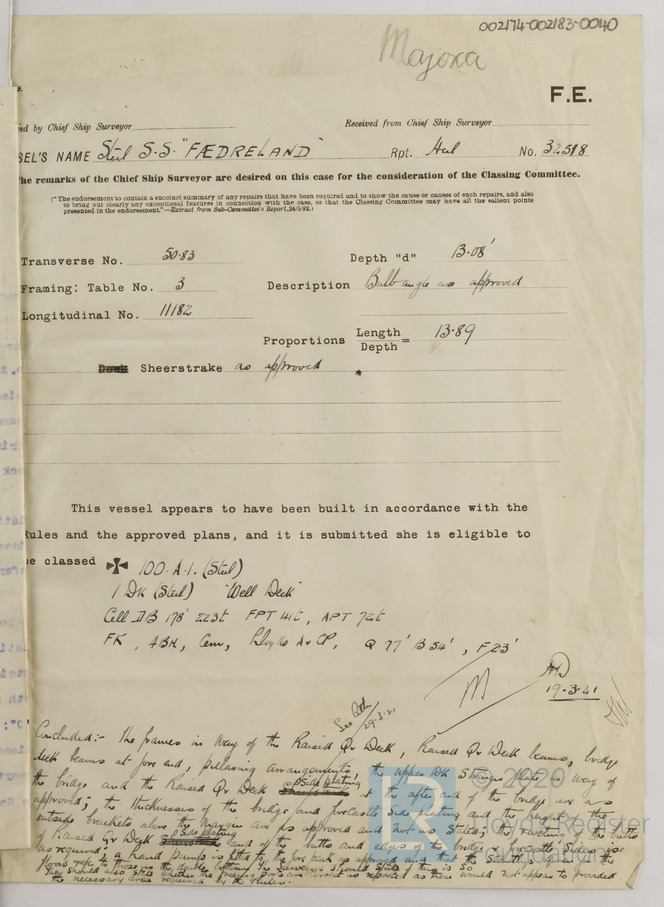 002174-002183-0040
Majorca
F.E.
ed by Chief Ship Surveyor
Received from Chief Ship Surveyor
SEL'S NAME Steel S.S. "FÆDRELAND" Rpt. Hul No. 32518
he remarks of the Chief Ship Surveyor are desired on this case for the consideration of the Classing Committee.
(*The endorsement to contain a succinct summary of any repairs that have been required and to show the cause or causes of such repairs, and also
to bring out clearly any exceptional features in connection with the case, so that the Classing Committee may have all the salient points
presented in the endorsement."—Extract from Sub-Committee's Report, 24/5/92.)
Transverse No. 50.83 Depth "d" 13.08'
Framing: Table No. 3 Description Bulb angle as approved
Longitudinal No. 11182
Proportions Length/Depth = 13.89
Deck Sheerstrake as approved
This vessel appears to have been built in accordance with the
Rules and the approved plans, and it is submitted she is eligible to
be classed ✠ 100.A.1. (Steel)
1 Dk (Steel) "Well Deck"
Cell DB 178' 223t FPT 41t, APT 72t
FK, 4BH, Cem, Lloyds A & CP, Q 77' B 54', F 23'
19.3.21
See
29.3.21
Concluded:- The frames in way of the Raised Qr Deck, Raised Qr Deck beams, bridge
deck beams at fore end, pillaring arrangements, the upper Dk Stringer plate in way of
the bridge and the Raised Qr Deck side plating at the after end of the bridge are as
approved; the thicknesses of the bridge and forecastle side plating and the height of the
outside brackets above the margin are as approved and not as stated; the riveting of the butts
of Raised Qr Deck side plating and of the butts and edges of the bridge & forecastle sides is
as required; a hand pump is fitted to the fore peak as approved and that the
the double bottom, the Surveyors should state if this is so
They should also state whether the freeing ports are correct as reported as there would not appear to provided
the necessary area required by the Rules.
© 2020
Lloyd's Register
Foundation